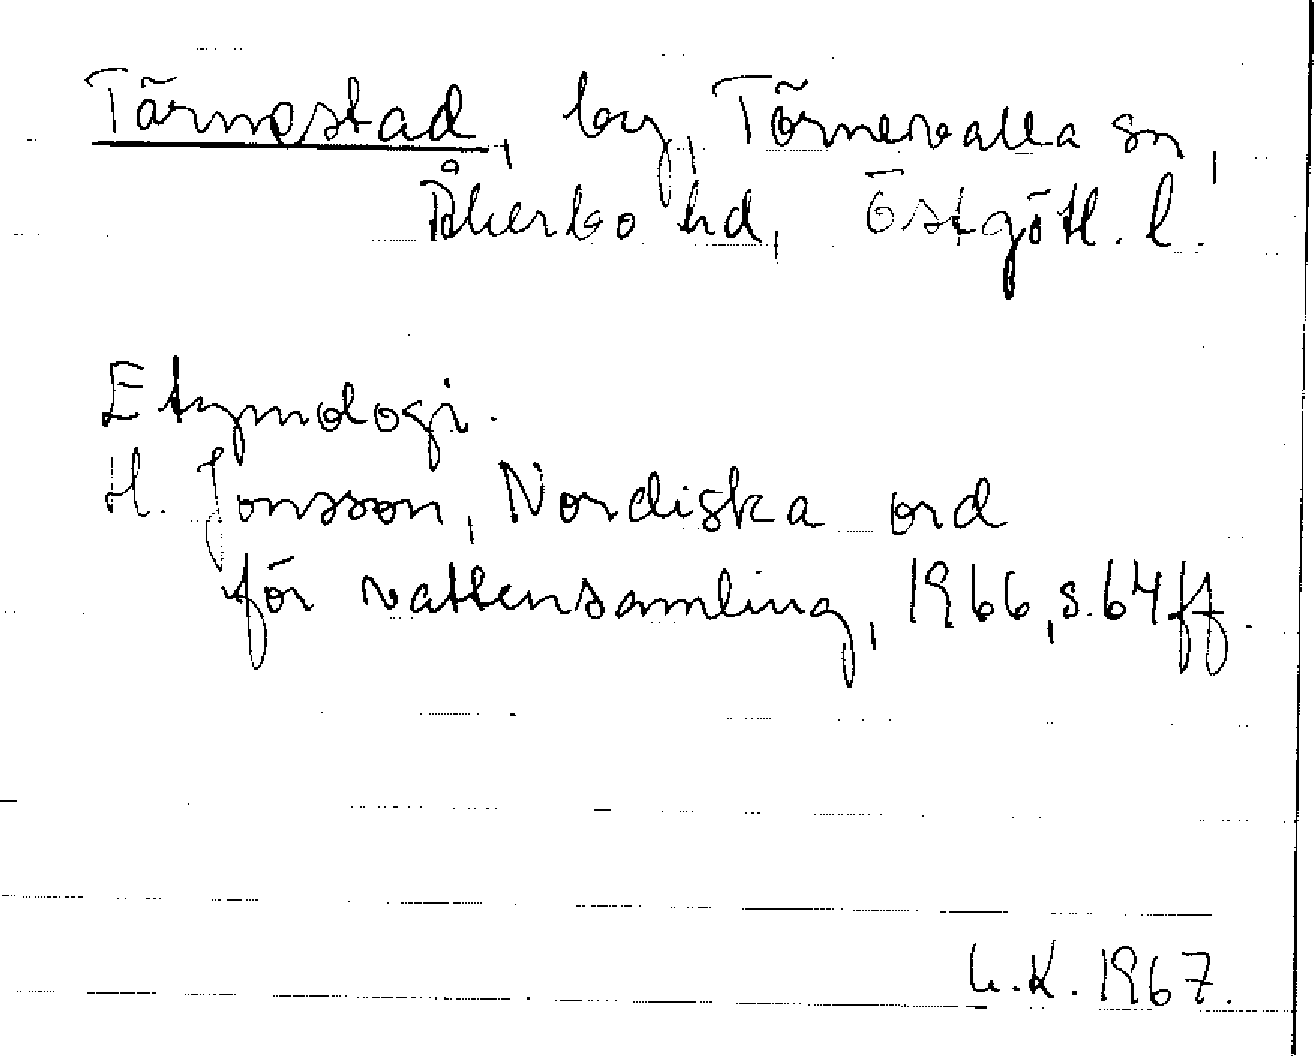 Tärnestad, by, Törnevalla sn,
Åkerbo hd, Östgötl. l.
Etymologi.
H. Jonsson, Nordiska ord
för vattensamling, 1966, s. 64 ff.
L.K. 1967.